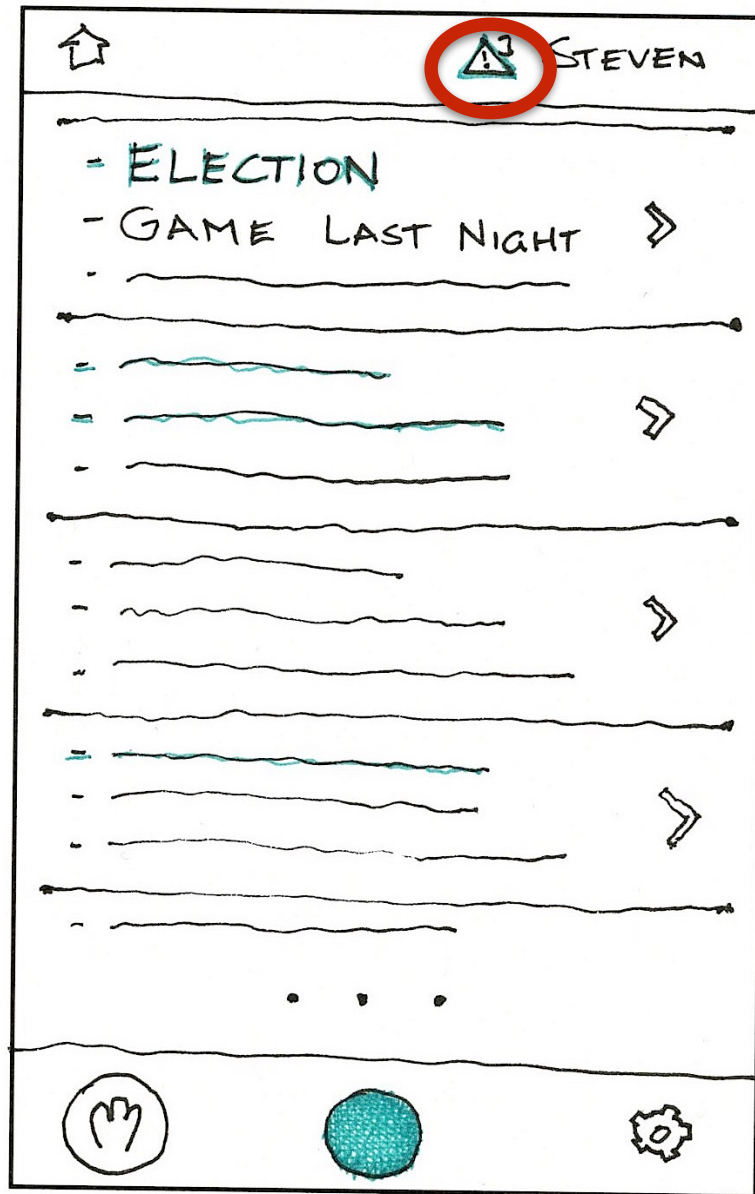 STEVEN
- ELECTION
- GAME LAST NIGHT